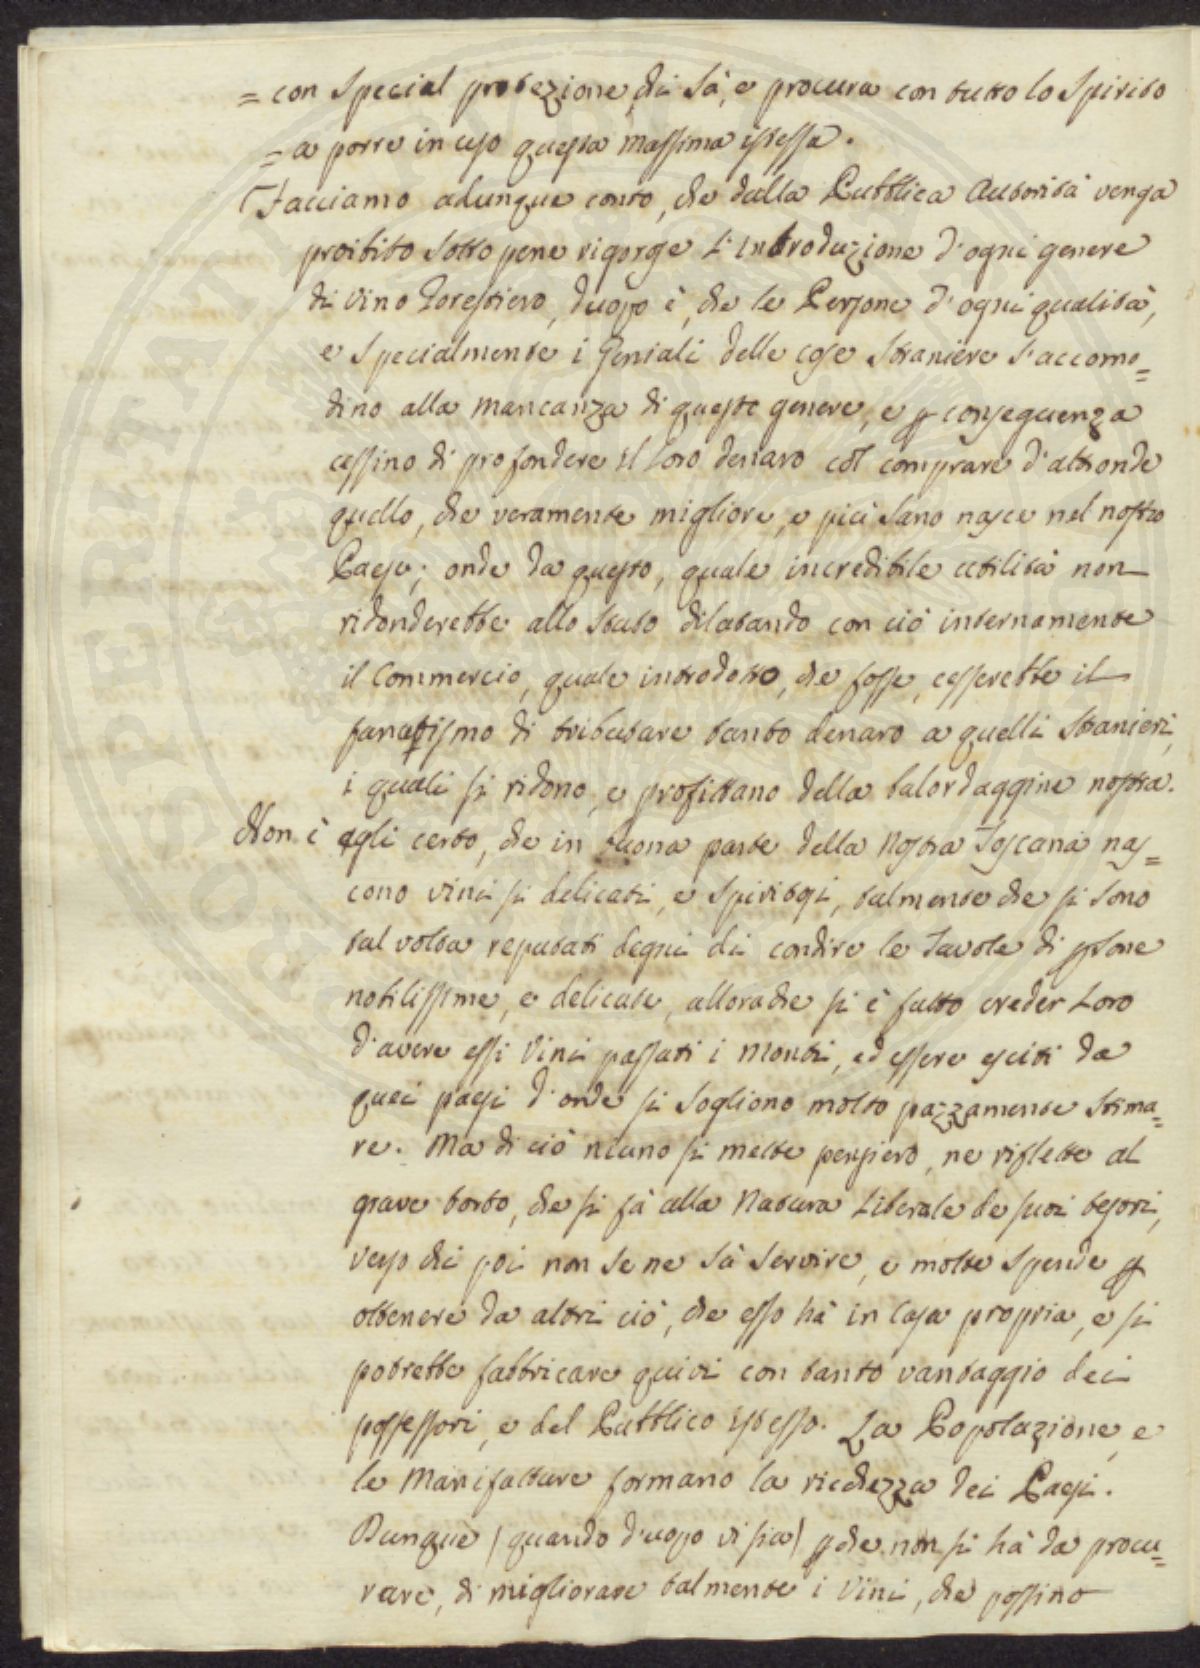 = con special protezione di Sà, e procura con tutto lo Spirito
= a porre in uso questa massima istessa.
Facciamo adunque conto, che dalla Pubblica Autorità venga
proibito sotto pene rigorose l'introduzione d'ogni genere
di vino Forestiero, duopo è, che le Persone d'ogni qualità,
e specialmente i Geniali delle cose Straniere s'accomo=
dino alla mancanza di questo genere, e p conseguenza
cessino di profondere il loro denaro col comprare d'altronde
quello, che veramente migliore, e più sano nasce nel nostro
Paese; onde da questo, quale incredibile utilità non
ridonderebbe allo Stato dilatando con ciò internamente
il Commercio, quale introdotto, che fosse, cesserebbe il
fanatismo di tributare tanto denaro a quelli Stranieri,
i quali si ridono, e profittano della balordaggine nostra.
Non è egli certo, che in buona parte della Nostra Toscana nas=
cono vini sì delicati, e spiritosi, talmente che si sono
tal volta reputati degni di condire le Tavole di psone
nobilissime, e delicate, allorache si è fatto creder Loro
d'avere essi Vini passati i Monti, ed essere esciti da
quei paesi d'onde si sogliono molto pazzamente stima=
re. Ma di ciò niuno si mette pensiero, ne riflette al
grave torto, che si fà alla Natura Liberale de suoi tesori,
verso chi poi non se ne sà servire, e molto spende p
ottenere da altri ciò, che esso hà in Casa propria, e si
potrebbe fabbricare quivi con tanto vantaggio dei
possessori, e del Pubblico istesso. La Popolazione, e
le Manifatture formano la ricchezza dei Paesi.
Dunque (quando d'uopo vi sia) pche non si hà da procu=
rare, di migliorare talmente i Vini, che possino